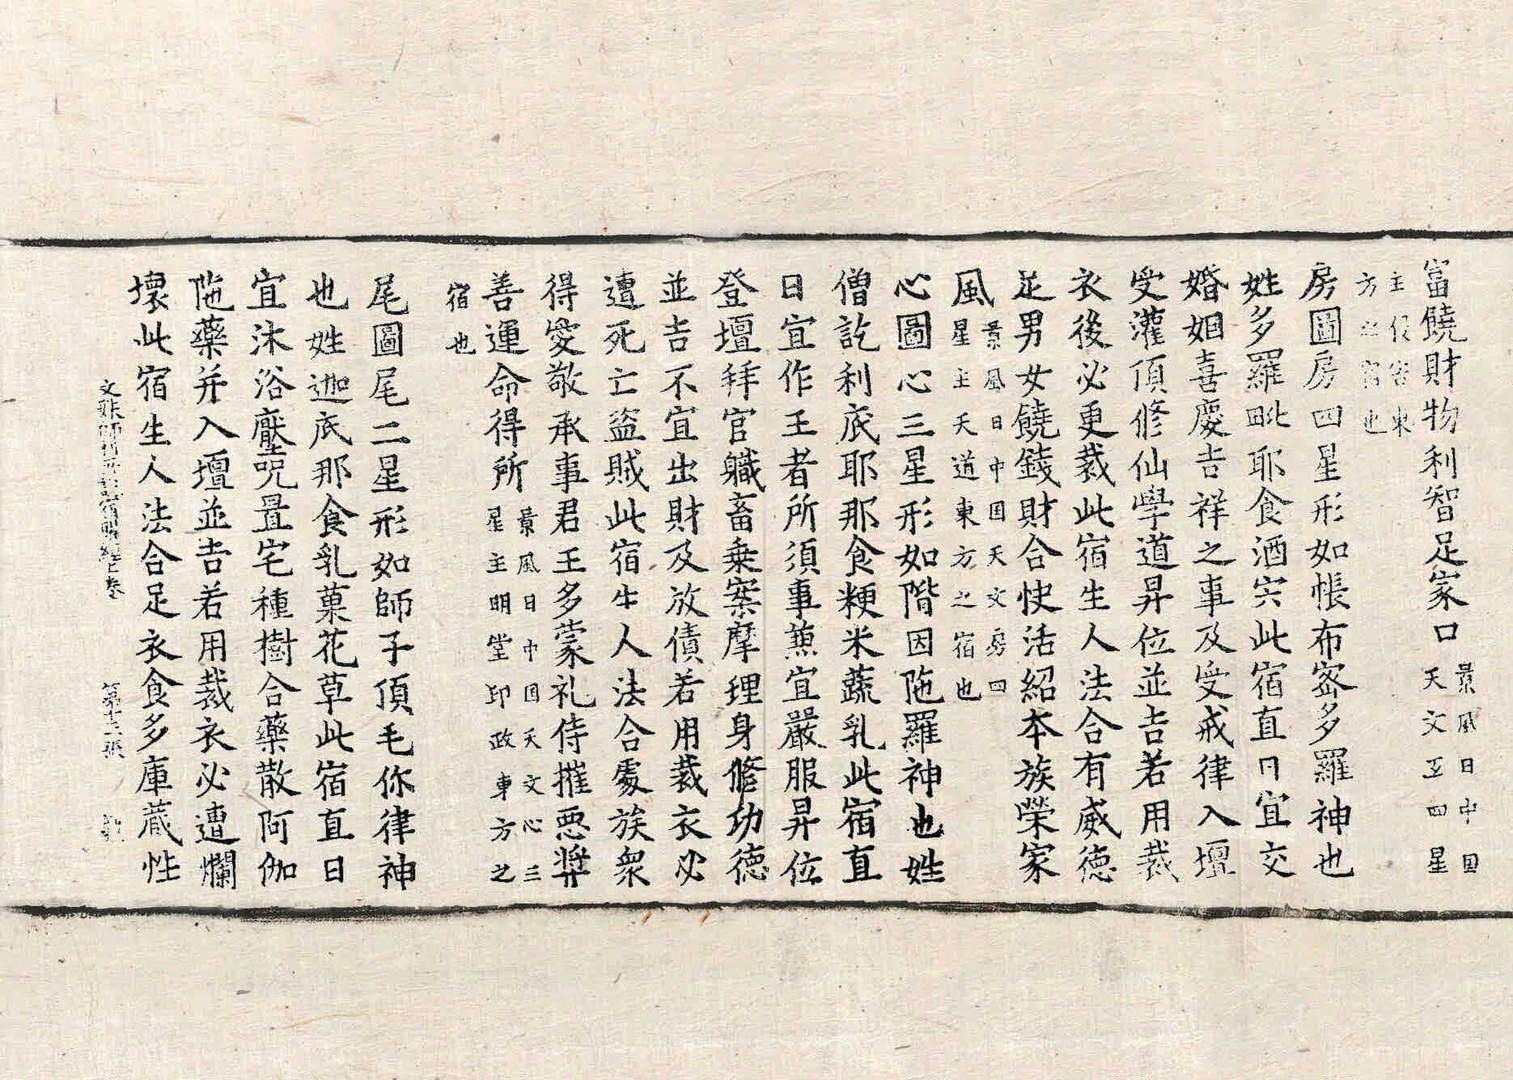 富饒財物利智足家口景風日中國天文氐四星
主役客東方之宿也
房圖房四星形如帳布密多羅神也
姓多羅毗耶食酒宍此宿直日宜交
婚姻喜慶吉祥之事及受戒律入壇
受灌頂修仙學道昇位並吉若用裁
衣後必更裁此宿生人法合有威德
足男女饒錢財合快活紹本族榮家
風景風日中國天文房四星主天道東方之宿也
心圖心三星形如階因陁羅神也姓
僧訖利底耶那食粳米蔬乳此宿直
日宜作王者所須事兼宜嚴服昇位
登壇拜官軄畜乗案摩理身修功德
並吉不宜出財及放債若用裁衣必
遭死亡盜賊此宿生人法合處族衆
得愛敬承事君王多蒙礼侍摧惡奬
善運命得所景風日中國天文心三星主明堂印政東方之
宿也
尾圖尾二星形如師子頂毛你律神
也姓迦底那食乳菓花草此宿直日
宜沐浴壓呪置宅種樹合藥散阿伽
陁藥并入壇並吉若用裁衣必遭爛
壞此宿生人法合足衣食多庫蔵性
文殊師利
宿曜經上卷 第十三張